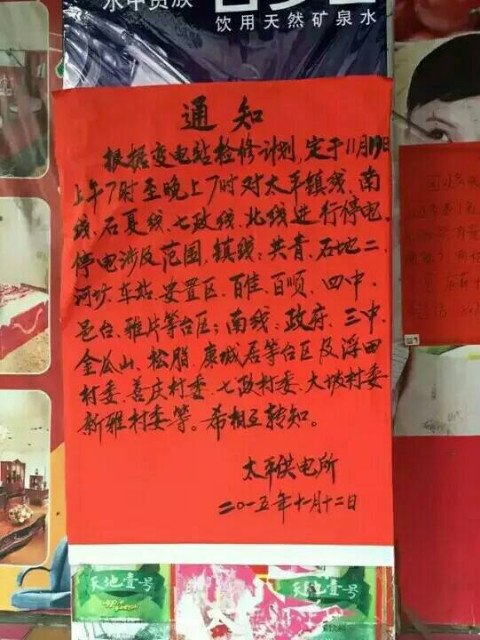 饮用天然矿泉水
通知
根据变电站检修计划,定于11月19日
上午7时至晚上7时对太平镇线、南
线、石夏线、七政线、北线进行停电。
停电涉及范围,镇线:共青、石地二、
河坊、车站、安置区、百佳、百顺、四中、
邑台、雅片等台区;南线:政府、三中、
金瓜山、松脂、康城居等台区及浮田
村委、善庆村委、七政村委、大坡村委
新雅村委等。希相互转知。
太平供电所
二〇一五年十一月十二日
天地壹号
天地壹号